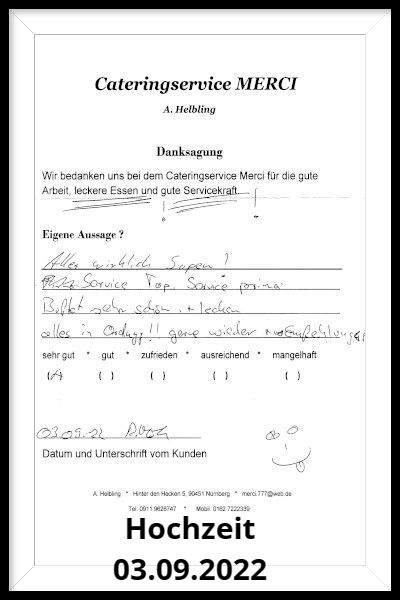 Cateringservice MERCI
A. Helbling
Danksagung
Wir bedanken uns bei dem Cateringservice Merci für die gute
Arbeit, leckere Essen und gute Servicekraft.
Eigene Aussage ?
Alles wirklich Super !
Service Top, Service prima
Büffet sehr schön + lecker
alles in Ordng!! gerne wieder Empfehlung
sehr gut * gut * zufrieden * ausreichend * mangelhaft
( ) ( ) ( ) ( ) ( )
03.09.22
Datum und Unterschrift vom Kunden
A. Helbling * Hinter den Hecken 5, 90451 Nürnberg * merci.777@web.de
Tel: 0911 9626747 * Mobil: 0162 7222339
Hochzeit
03.09.2022